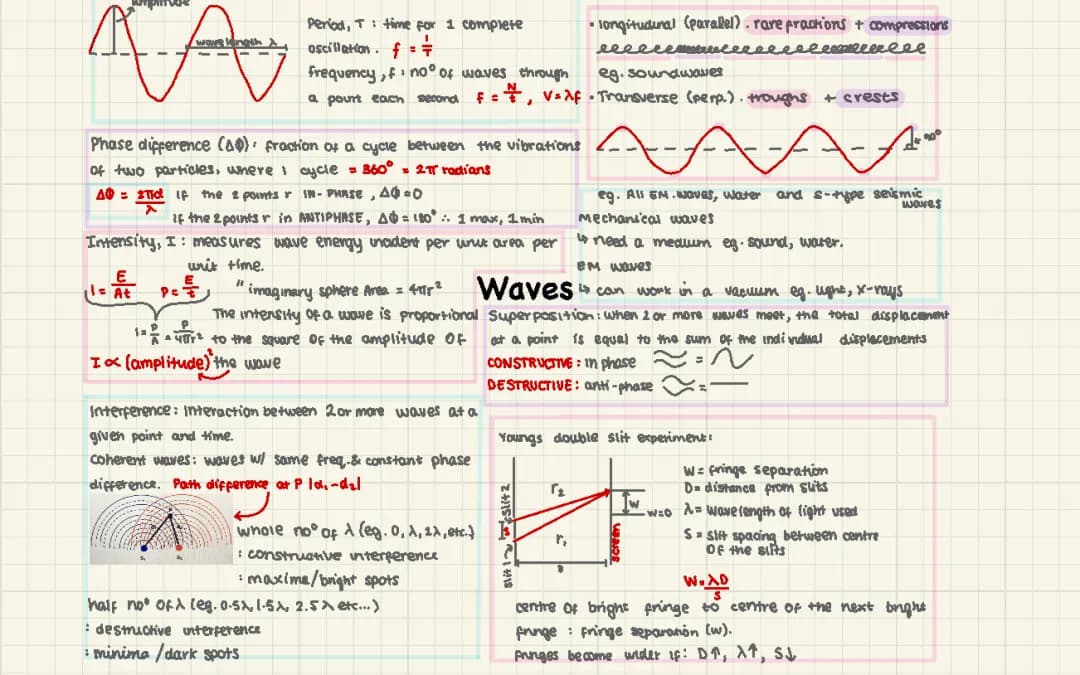 amplitude
wavelength λ
Period, T : time for 1 complete
oscillation. f = 1/T
frequency, f : noº of waves through
a point each second f = N/t , V = λf
• longitudinal (parallel) . rarefractions + compressions
eg. soundwaves
• Transverse (perp.) . troughs + crests
noº
eg. All EM.waves, water and s-type seismic
waves
Mechanical waves
↳ need a medium eg. sound, water.
EM waves
↳ can work in a vacuum eg. light, x-rays
Phase difference (ΔΦ): fraction of a cycle between the vibrations
of two particles, where 1 cycle = 360° = 2π radians
ΔΦ = 2πd/λ if the 2 points r IN- PHASE , ΔΦ = 0
if the 2 points r in ANTIPHASE, ΔΦ = 180° ∴ 1 max, 1 min
Intensity, I : measures wave energy incident per unit area per
unit time.
I = E/At P = E/t " imaginary sphere Area = 4πr²
The intensity of a wave is proportional
I = P/A = P/4πr² to the square of the amplitude of
I ∝ (amplitude)² the wave
Waves
Superposition: when 2 or more waves meet, the total displacement
at a point is equal to the sum of the individual displacements
CONSTRUCTIVE : in phase =
DESTRUCTIVE : anti-phase =
Interference: interaction between 2 or more waves at a
given point and time.
Coherent waves: waves w/ same freq. & constant phase
difference. Path difference at P |d₁-d₂|
P
S₁ S₂
whole noº of λ (eg. 0, λ, 2λ, etc.)
: constructive interference
: maxima/bright spots
half noº of λ (eg. 0.5λ, 1.5λ, 2.5λ etc...)
: destructive interference
: minima /dark spots
Youngs double slit experiment:
slit 2
S
slit 1
r₂
r₁
D
screen
W
W=0
W = fringe separation
D = distance from slits
λ = wavelength of light used
S = slit spacing between centre
of the slits
W = λD/S
centre of bright fringe to centre of the next bright
fringe : fringe separation (w).
fringes become wider if: D↑, λ↑, S↓